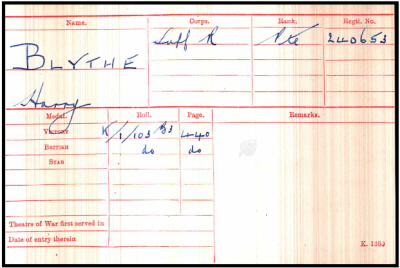 Name. Corps. Rank. Regtl. No.
BLYTHE Suff R Pte 240653
Harry
Medal. Roll. Page. Remarks.
VICTORY K/1/103 B3 440
BRITISH do do
STAR
Theatre of War first served in
Date of entry therein
K. 1380